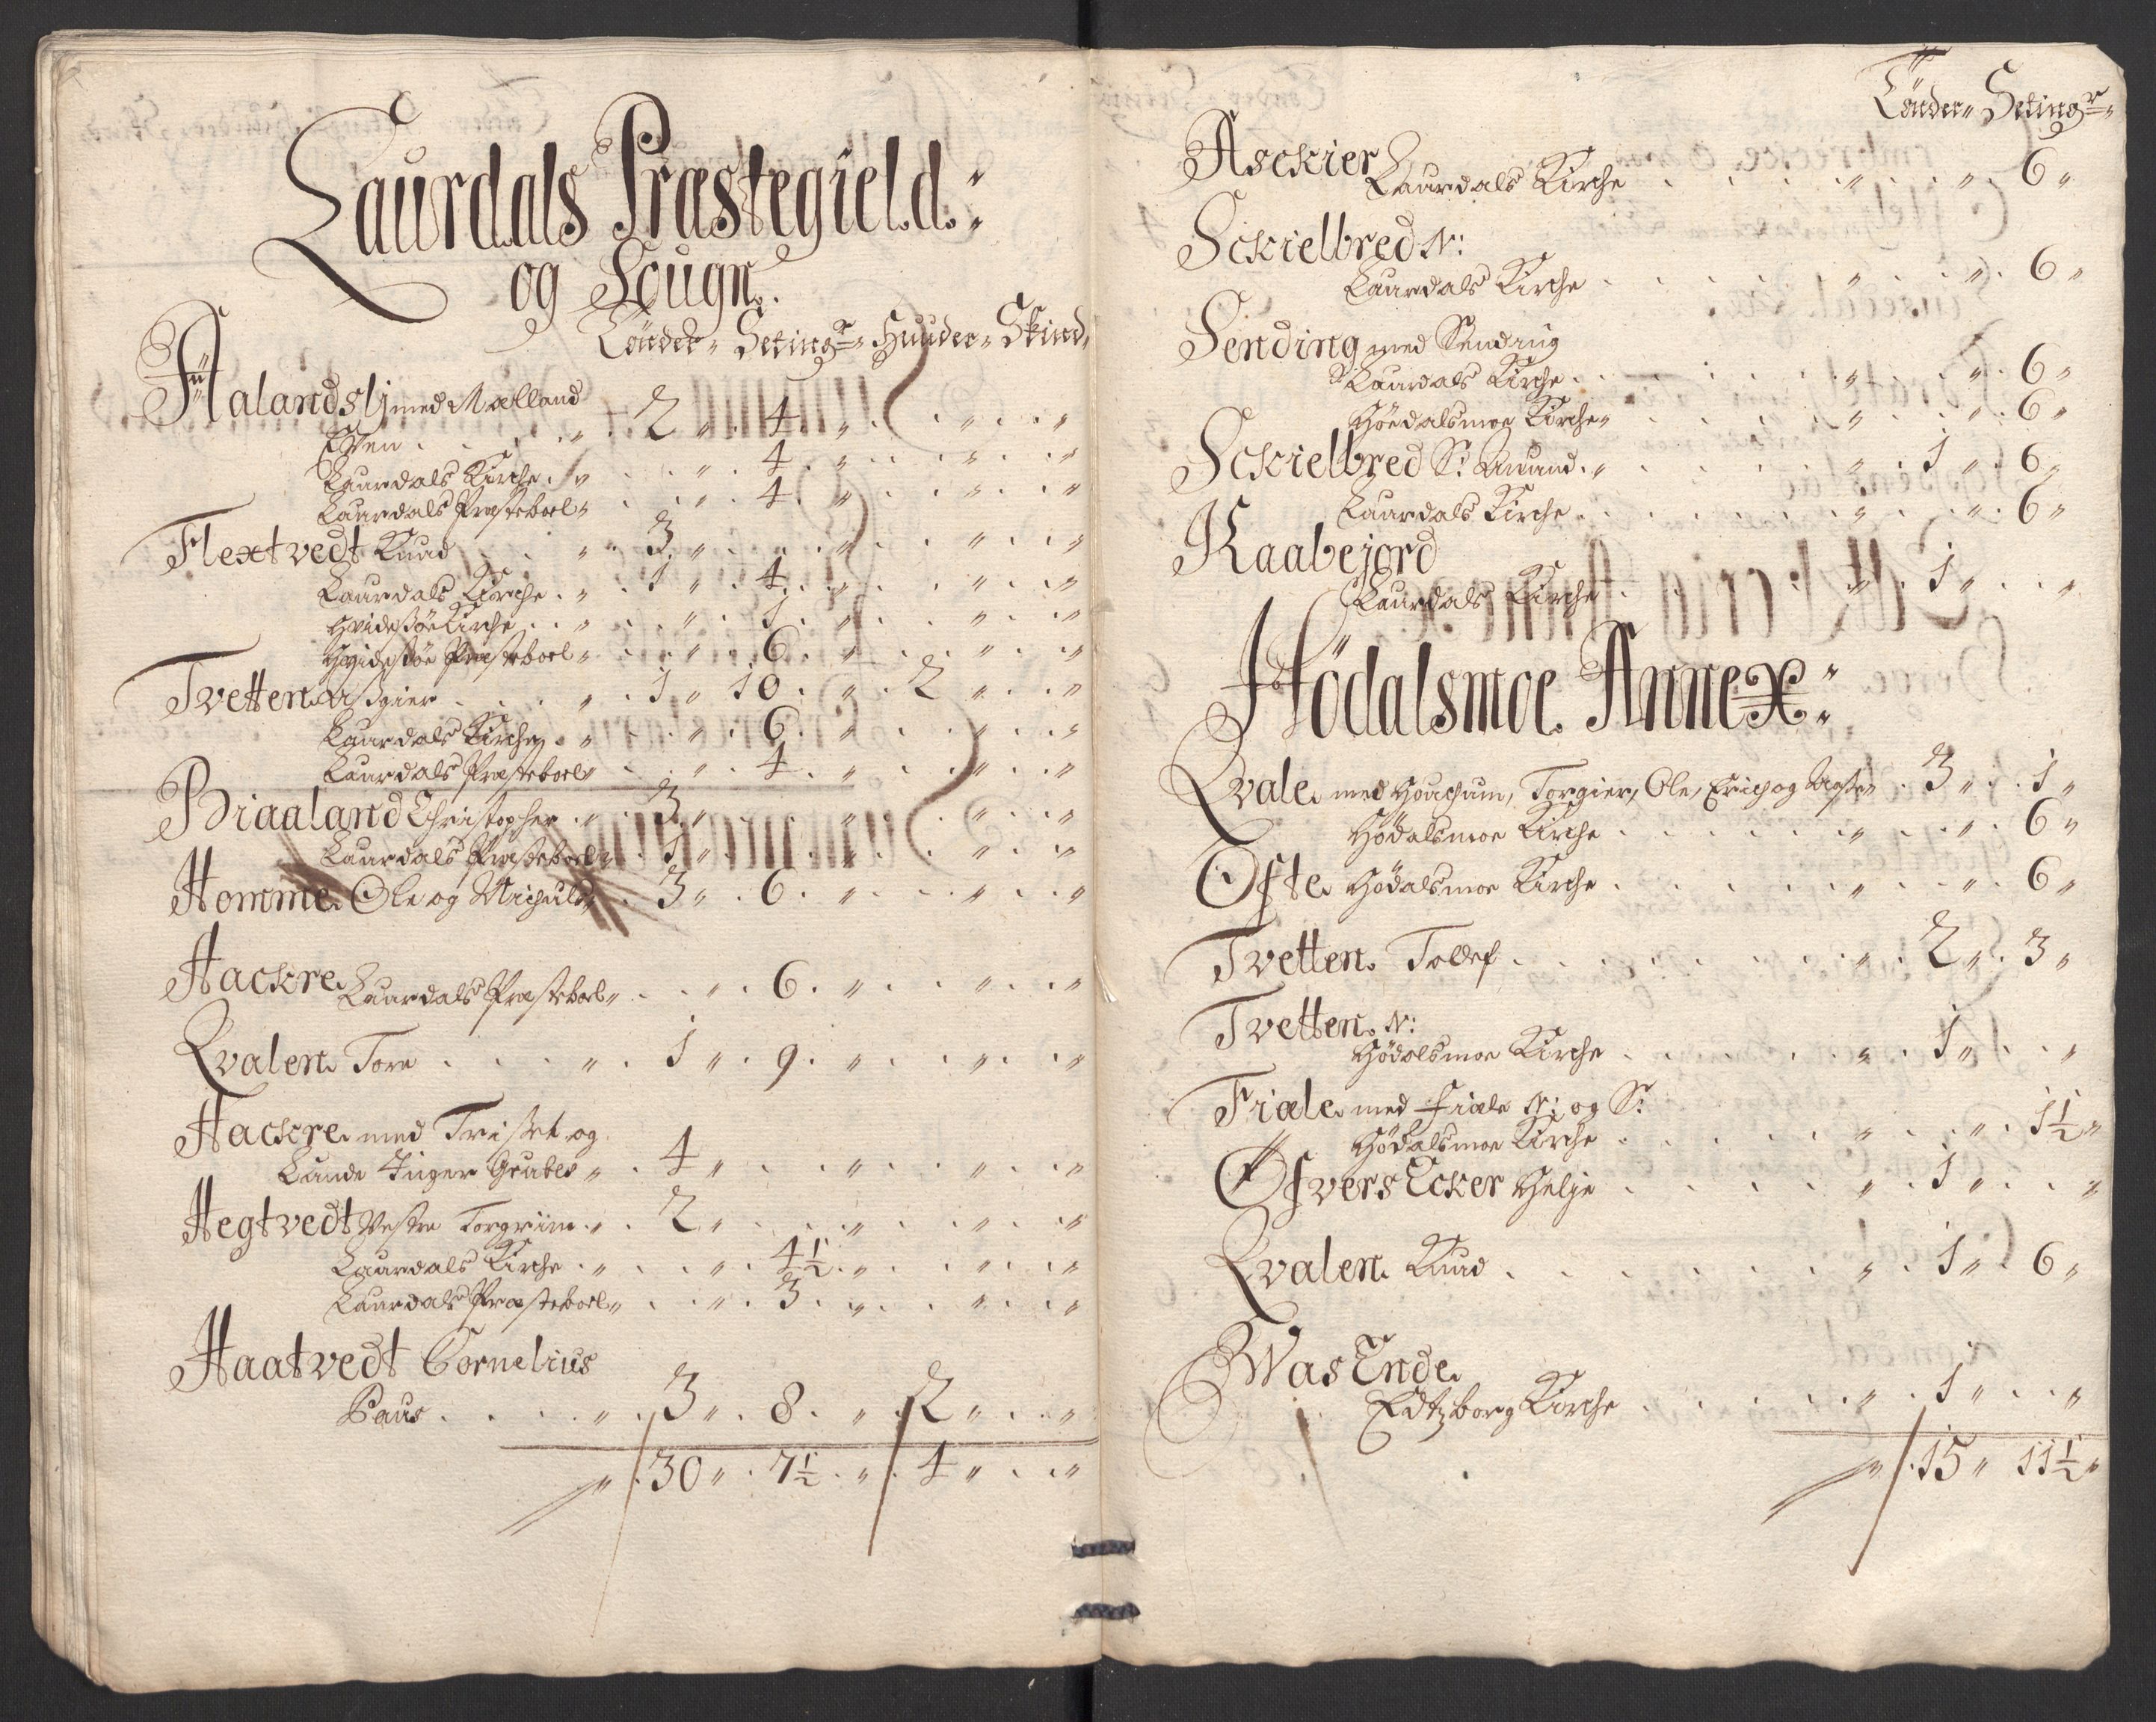 Laurdals Præstegield:
og Sougn.
Tönder„ Setingr„ Huuder„ Skind„
Aalandslj med Malland
Even . . . „ . 2 „ . 4 . „ . . „ . . „
Laurdals Kirche . „ . . „ . 4 . „ . . „ . . „
Laurdals Præsteboel „ . . „ . 4 „ . . „ . . „
Flextvedt Knud . . „ . 3 „ . . . „ . . „ . . „
Laurdals Kirche . „ . 1 „ . 4 . „ . . „ . . „
Hvidesøe Kirche . . „ . . „ . 1 . „ . . „ . . „
Hvidesøe Præsteboel „ . . „ . 6 . „ . . „ . . „
Tvetten Asgier . . . „ . 1 „ 10 . „ . 2 „ . . „
Laurdals Kirche „ . . „ . 6 . „ . . „ . . „
Laurdals Præsteboel „ . . „ . 4 . „ . . „ . . „
Biaaland Christopher . „ . 3 „ . . . „ . . „ . . „
Laurdals Præsteboel „ . 1 „ . . . „ . . „ . . „
Homme Ole og Nichuld „ . 3 „ . 6 . „ . . „ . . „
Hackre Laurdals Præsteboel „ . . „ . 6 . „ . . „ . . „
Qvalen Tore . . . . „ . 1 „ . 9 . „ . . „ . . „
Hackre med Triset og
Lunde Inger Grubes „ . 4 „ . . . „ . . „ . . „
Hegtvedt Vestre Torgrim . „ . 2 „ . . . „ . . „ . . „
Laurdals Kirche . „ . . „ . 4½ . „ . . „ . . „
Laurdals Præsteboel „ . . „ . 3 . „ . . „ . . „
Haatvedt Cornelius
Paus . . . . „ . 3 „ . 8 . „ . 2 „ . . „
„ . 30 „ . 7½ . „ . 4 „ . . „
Tönder„ Setingr„
Asckier
Laurdals Kirche . . . . „ . . „ . 6 „
Sckielbred N:
Laurdals Kirche . . . . „ . . „ . 6 „
Sending med Sending
Laurdals Kirche . . . . „ . . „ . 6 „
Hödalsmoe Kirche „ . . . . „ . . „ . 6 „
Sckielbred S: Anund . „ . . . . „ . 1 „ . 6 „
Laurdals Kirche . . . . „ . . „ . 6 „
Kaabejord
Laurdals Kirche . . . . „ . 1 „ . . „
Hödalsmoe Annex:
Qvale med Houchum, Torgier, Ole, Erich og „ . 3 „ . 1 „
Hödalsmoe Kirche . . . . „ . . „ . 6 „
Ofte Hödalsmoe Kirche . . . . „ . . „ . 6 „
Tvetten Tollef . . . . „ . 2 „ . 3 „
Tvetten N:
Hödalsmoe Kirche . . . . „ . 1 „ . . „
Fiale med Fiale N: og S:
Hödalsmoe Kirche . . . . „ . . „ . 1½ „
Øfvers Ecker Helje . . . . „ . 1 „ . . „
Qvalen Knud . . . . „ . 1 „ . 6 „
Was Ende
Edtzborg Kirche . . . . „ . 1 „ . . „
„ . 15 „ 11½ „